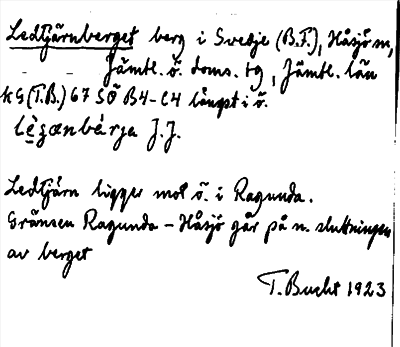 Ledtjärnberget berg i Svedje (B.F.), Håsjö sn,
Jämtl. ö. doms. tg, Jämtl. län
KG(T.B.) 67 SÖ B4-C4 längst i ö.
J.J.
Ledtjärn ligger mot ö. i Ragunda.
Gränsen Ragunda - Håsjö går på n. sluttningen
av berget
T. Bucht 1923